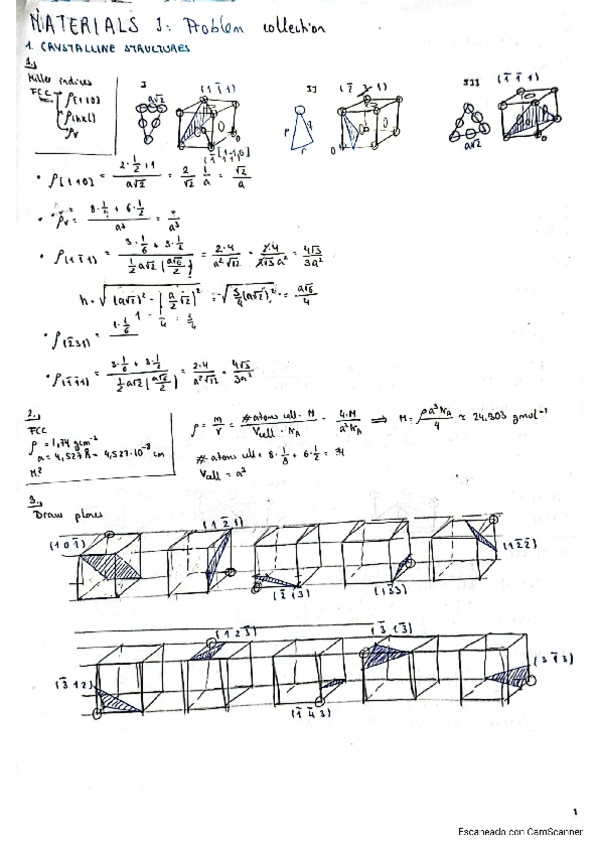 MATERIALS I: Problem collection
1. CRYSTALLINE STRUCTURES
1.,
Miller indices
FCC
ρ[110]
ρ(hkl)
ρv
I
a√2
(1 1̄ 1)
II
III
(1̄ 1̄ 1)
a√2
• ρ[110] = (2·1/2 + 1)/(a√2) = 2/√2 · 1/a = √2/a
• ρv = (8·1/8 + 6·1/2)/a³ = /a³
• ρ(11̄1) = (3·1/6 + 3·1/2)/(1/2 a√2 (a√6/2)) = 2·4/(a²√12) = 2·4/(2√3 a²) = 4√3/3a²
h = √((a√2)² - (a/2 √2)²) = √(3/4 (a√2)²) = a√6/4
1 - 1/4 = 3/4
• ρ(2̄31) = 1·1/6
• ρ(1̄1̄1) = (3·1/6 + 3·1/2)/(1/2 a√2 (a√6/2)) = 2·4/(a²√12) = 4√3/3a²
2.,
FCC
ρ = 1,74 gcm⁻³
a = 4,527 Å = 4,527·10⁻⁸ cm
M?
ρ = m/V = # atoms cell · M/(Vcell · NA) = 4·M/(a³NA) ⟹ M = ρa³NA/4 ≈ 24.303 gmol⁻¹
# atoms cell = 8·1/8 + 6·1/2 = 4
Vcell = a³
3.,
Draw planes
(1 0 1̄)
(1 2̄ 1)
(2̄ 1 3)
(1 3̄ 3)
(1 2̄ 2̄)
(3̄ 1 2)
(1 2 3̄)
(1̄ 4̄ 3)
(3̄ 1 3̄)
(3 1̄ 3)
1
Escaneado con CamScanner